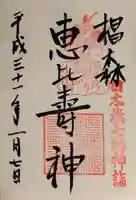 日本橋七福神詣
椙森
恵比壽神
平成三十一年一月七日